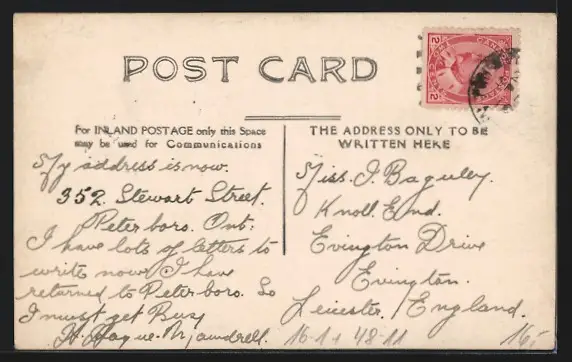 POST CARD
For INLAND POSTAGE only this Space
may be used for Communications
THE ADDRESS ONLY TO BE
WRITTEN HERE
My address is now.
352. Stewart Street.
Peterboro. Ont.
I have lots of letters to
write now I have
returned to Peterboro. So
I must get Busy
H. Hague.
Miss. J. Baguley.
Knoll End.
Evington Drive
Evington.
Leicester. England.
16-1 48-11
16/-
2 2